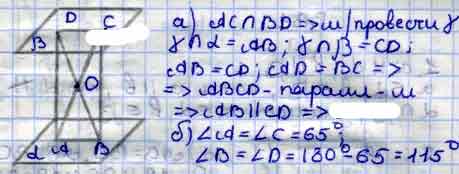 D C
B
O
α A B
а) AC∩BD => м/провести γ
γ∩α = AB; γ∩β = CD;
AB = CD; AD = BC =>
=> ABCD - парал-м
=> AB||CD =>
б) ∠A = ∠C = 65°;
∠B = ∠D = 180° - 65 = 115°